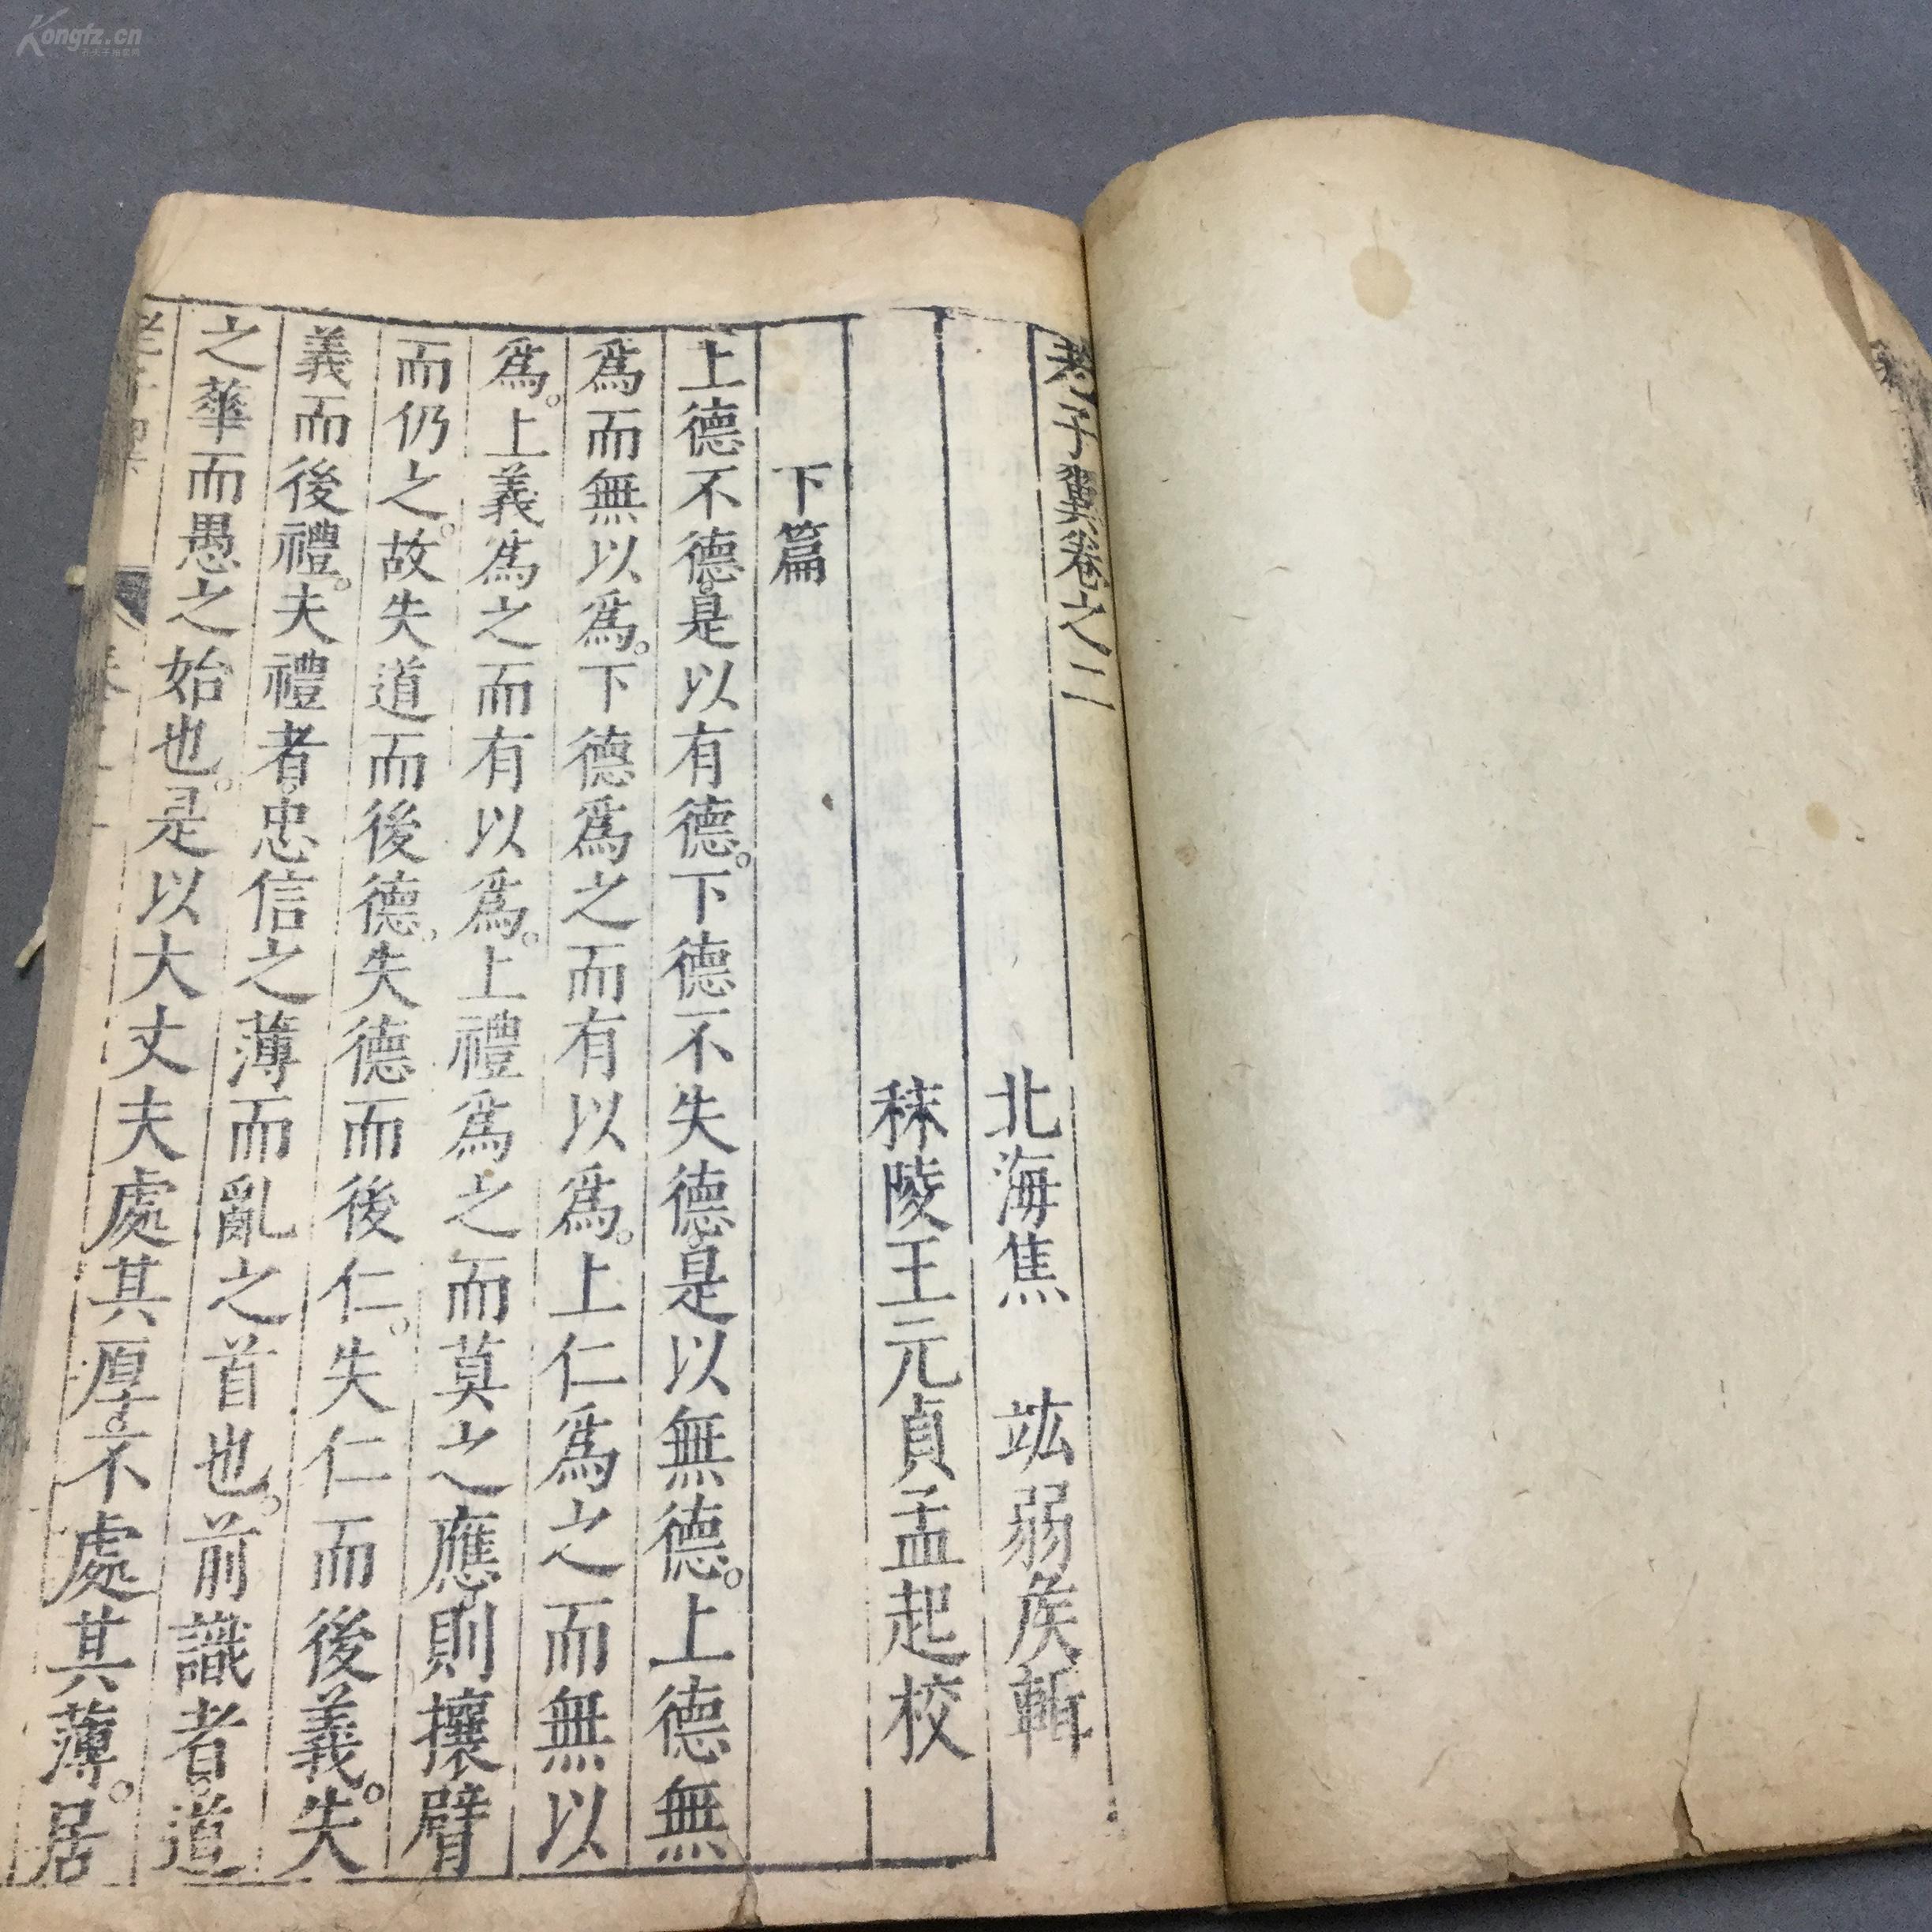 Kongfz.cn
老子翼卷之二
北海焦　竑弱侯輯
秣陵王元貞孟起校
下篇
上德不德。是以有德。下德不失德。是以無德。上德無
爲而無以爲。下德爲之而有以爲。上仁爲之而無以
爲。上義爲之而有以爲。上禮爲之而莫之應。則攘臂
而仍之。故失道而後德。失德而後仁。失仁而後義。失
義而後禮。夫禮者。忠信之薄而亂之首也。前識者。道
之華而愚之始也。是以大丈夫處其厚。不處其薄。居